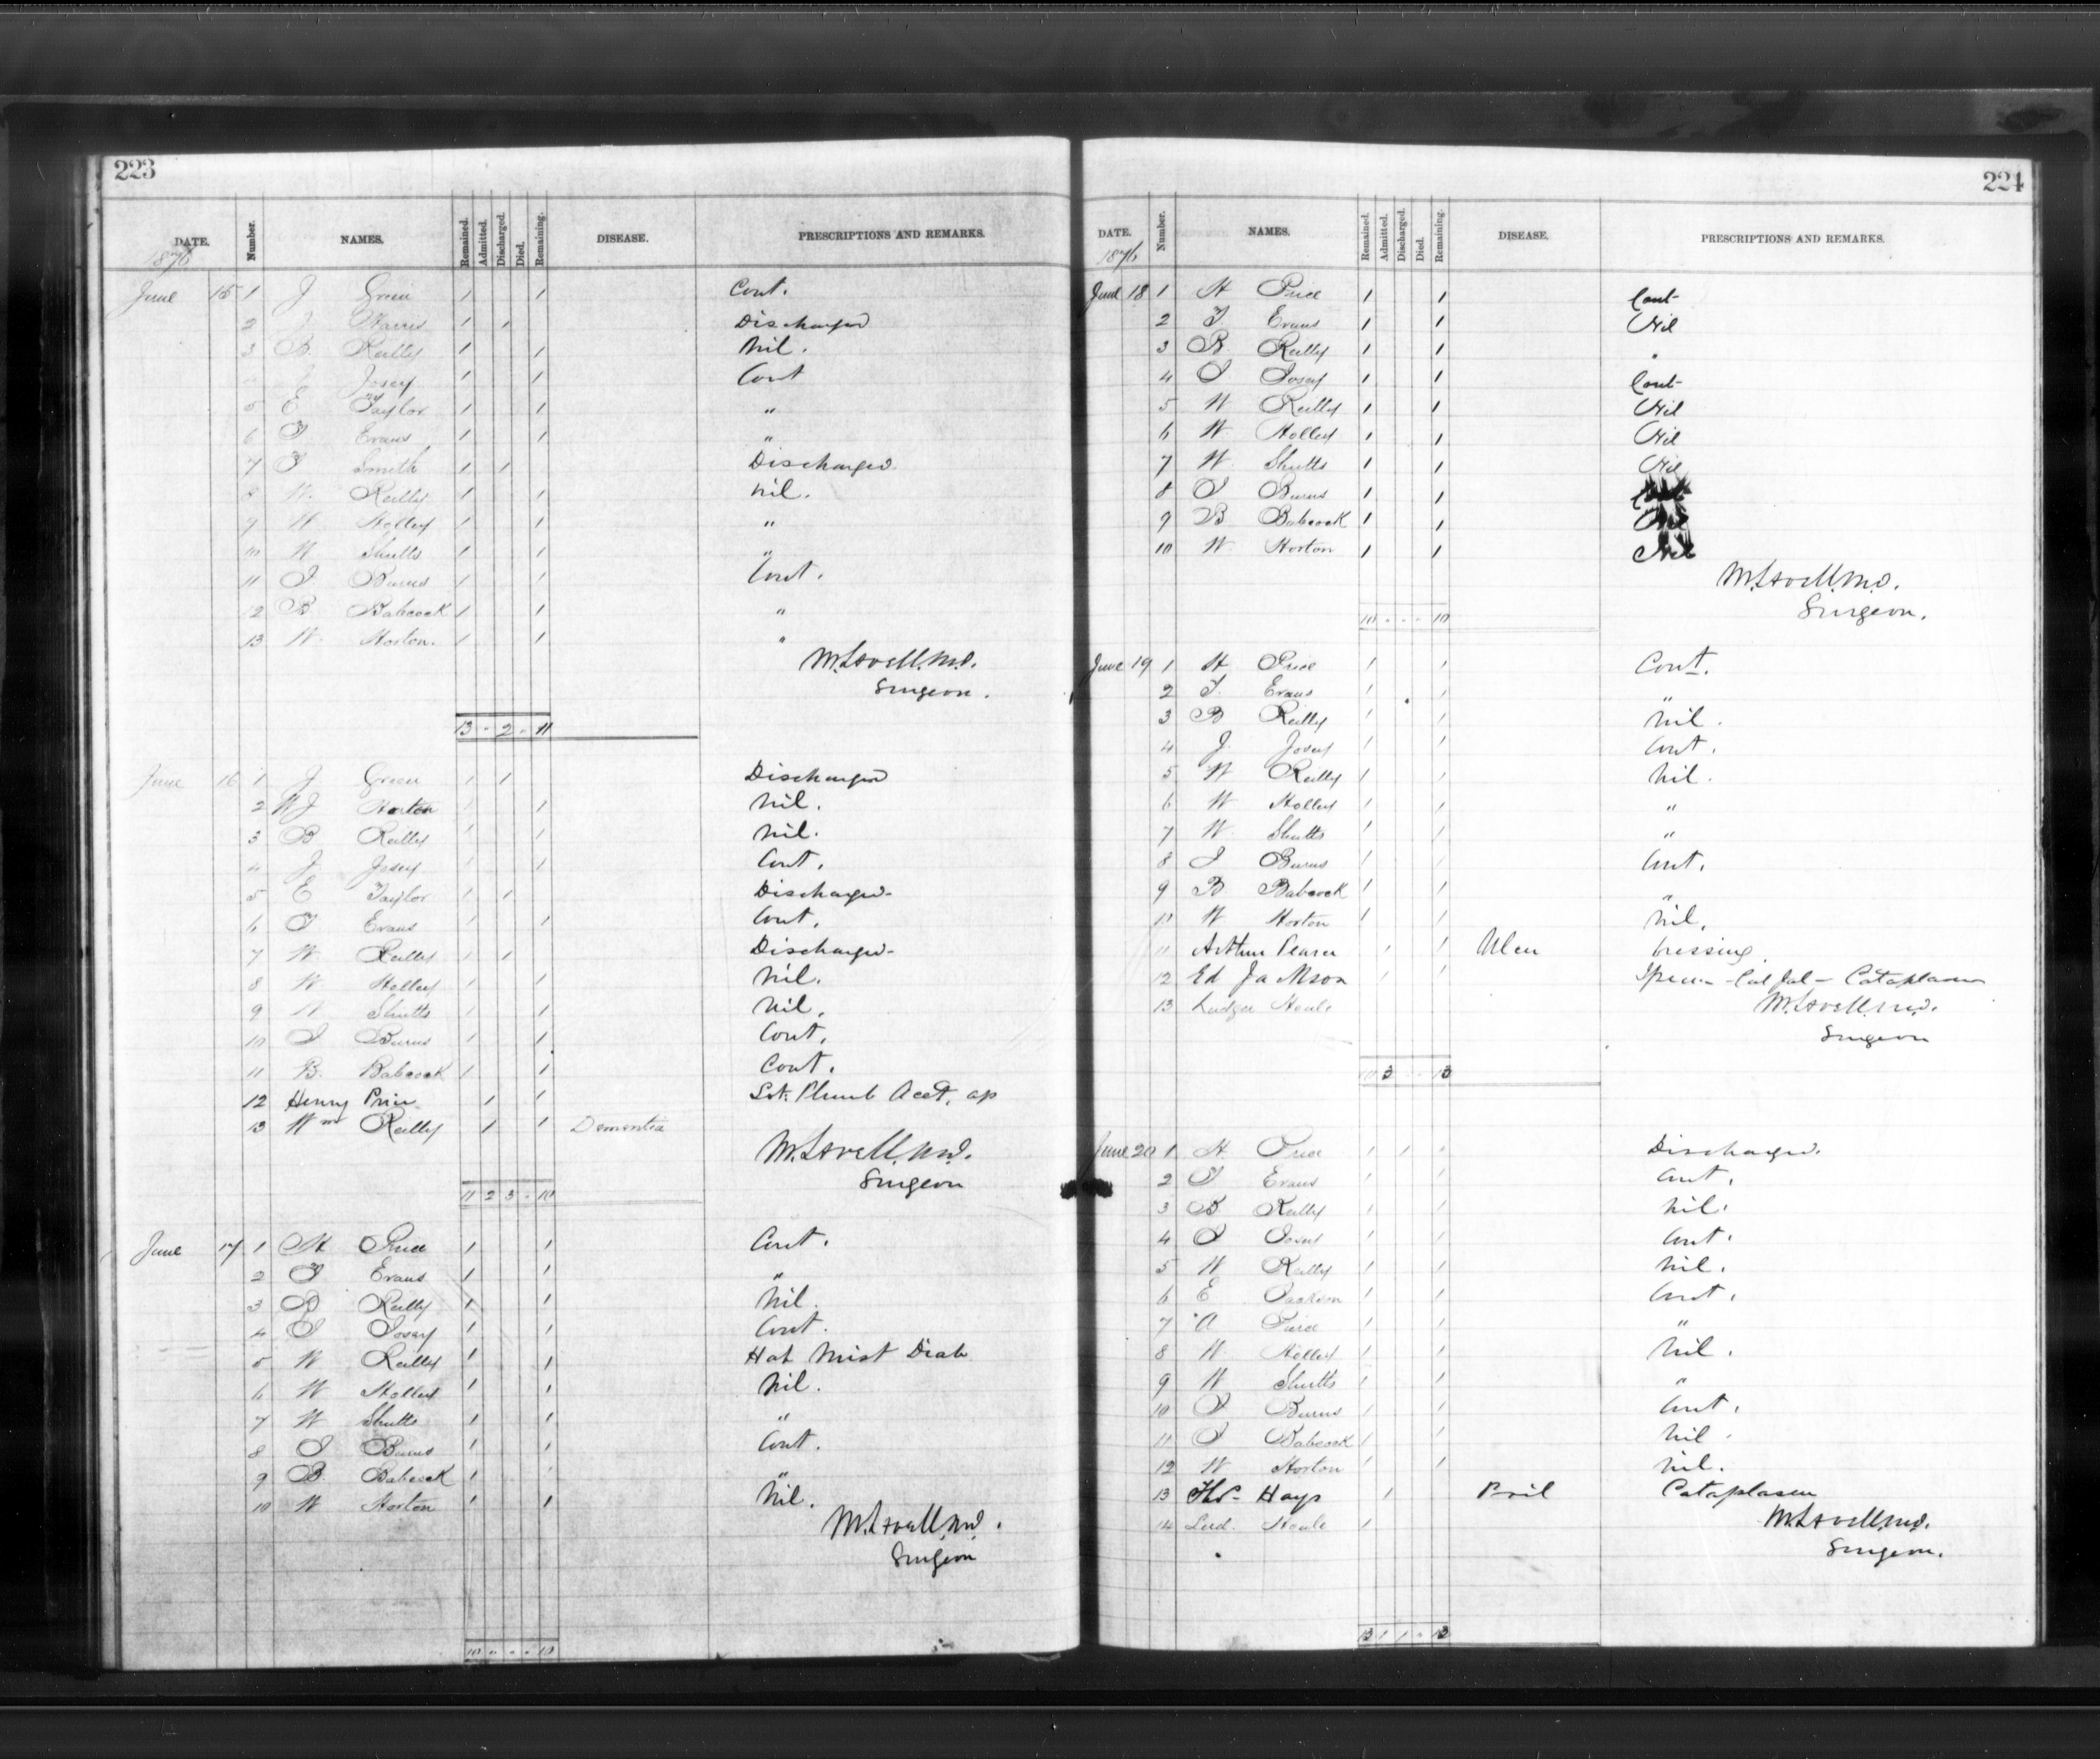 223
DATE. Number. NAMES. Remained. Admitted. Discharged. Died. Remaining. DISEASE. PRESCRIPTIONS AND REMARKS.
1876
June 15 1 J Green 1 1 Cont.
2 J Harris 1 1 Discharged
3 B. Reilly 1 1 Nil.
J Josey 1 1 Cont
5 E Taylor 1 1 "
6 T Evans 1 1 "
7 T Smith 1 1 Discharged
8 W. Reilly 1 1 Nil.
9 W Holley 1 1 "
10 W Shutts 1 1 "
11 J Burns 1 1 Cont.
12 B Babcock 1 1 "
13 W. Horton. 1 1 "
M. Lavell, M.D.
Surgeon.
13 - 2 - 11
June 16 1 J Green 1 1 Discharged
2 W J Horton 1 1 Nil.
3 B Reilly 1 1 Nil.
4 J Josey 1 1 Cont.
5 E Taylor 1 1 Discharged
6 T Evans 1 1 Cont.
7 W. Reilly 1 1 Discharged
8 W. Holley 1 1 Nil.
9 W Shutts 1 1 Nil.
10 J Burns 1 1 Cont.
11 B. Babcock 1 1 Cont.
12 Henry Price 1 1 Lot. Plumb Acet. ap
13 Wm Reilly 1 1 Dementia
M. Lavell, M.D.
Surgeon
11 2 3 - 10
June 17 1 H Price 1 1 Cont.
2 T Evans 1 1 "
3 B Reilly 1 1 Nil.
4 J Josey 1 1 Cont.
5 W Reilly 1 1 Hab Mist Diab
6 W Holley 1 1 Nil.
7 W Shutts 1 1 "
8 J Burns 1 1 Cont.
9 B. Babcock 1 1 "
10 W Horton 1 1 Nil.
M. Lavell, M.D.
Surgeon
10 - - - 10
224
DATE. Number. NAMES. Remained. Admitted. Discharged. Died. Remaining. DISEASE. PRESCRIPTIONS AND REMARKS.
1876
June 18 1 H Price 1 1 Cont
2 T. Evans 1 1 Nil
3 B Reilly 1 1 "
4 J Josey 1 1 Cont
5 W Reilly 1 1 Nil
6 W. Holley 1 1 Nil
7 W. Shutts 1 1 Nil
8 J Burns 1 1
9 B Babcock 1 1
10 W Horton 1 1 Nil
M. Lavell, M.D.
Surgeon.
10 - - - 10
June 19 1 H Price 1 1 Cont.
2 T. Evans 1 1 "
3 B Reilly 1 1 Nil.
4 J. Josey 1 1 Cont.
5 W Reilly 1 1 Nil.
6 W Holley 1 1 "
7 W. Shutts 1 1 "
8 J Burns 1 1 Cont.
9 B Babcock 1 1 "
10 W Horton 1 1 Nil.
11 Arthur Pearce 1 1 Ulcer Dressing.
12 Ed Jackson 1 1 Cal Jal - Cataplasm
13 Ludger Houle
M. Lavell, M.D.
Surgeon
10 3 - - 13
June 20 1 H Price 1 1 Discharged.
2 T Evans 1 1 Cont.
3 B Reilly 1 1 Nil.
4 J Josey 1 1 Cont.
5 W Reilly 1 1 Nil.
6 E Jackson 1 1 Cont.
7 A 1 1 "
8 W Holley 1 1 Nil.
9 W Shutts 1 1 "
10 J Burns 1 1 Cont.
11 J Babcock 1 1 Nil.
12 W Horton 1 1 Nil.
13 Hays 1 Boil Cataplasm
14 Lud. Houle 1
M. Lavell, M.D.
Surgeon.
13 1 1 - 13